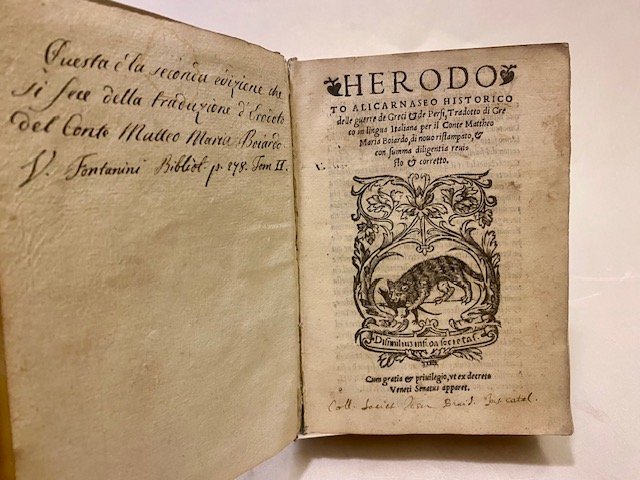 Questa è la seconda edizione che
si fece della traduzione d'Erodoto
del Conte Matteo Maria Boiardo
V. Fontanini Bibliot. p. 278. Tom II.
HERODO
TO ALICARNASEO HISTORICO
delle guerre de Greci & de Persi, Tradotto di Gre
co in lingua Italiana per il Conte Mattheo
Maria Boiardo, di novo ristampato, &
con summa diligentia revi
sto & corretto.
Disimilium infida societas.
Cum gratia & privilegio, ut ex decreto
Veneti Senatus apparet.
Coll. Societ. Jesu Braid.